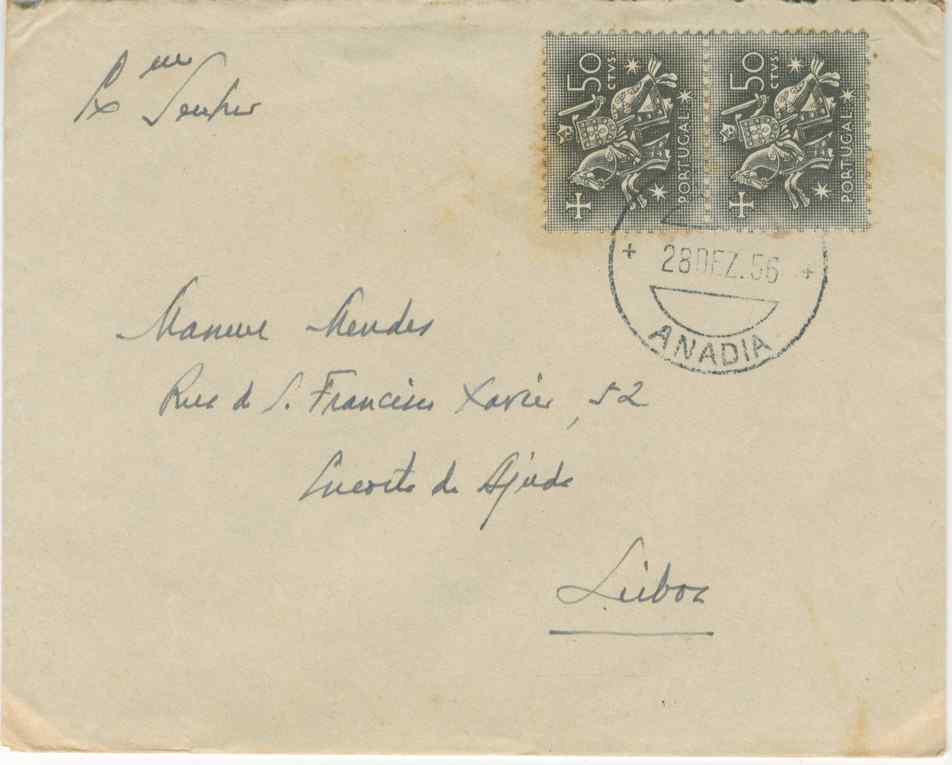 Exmo Senhor
50 CTVS. PORTUGAL
50 CTVS. PORTUGAL
28 DEZ. 56
ANADIA
Manuel Mendes
Rua de S. Francisco Xavier, 52
Encosta da Ajuda
Lisboa